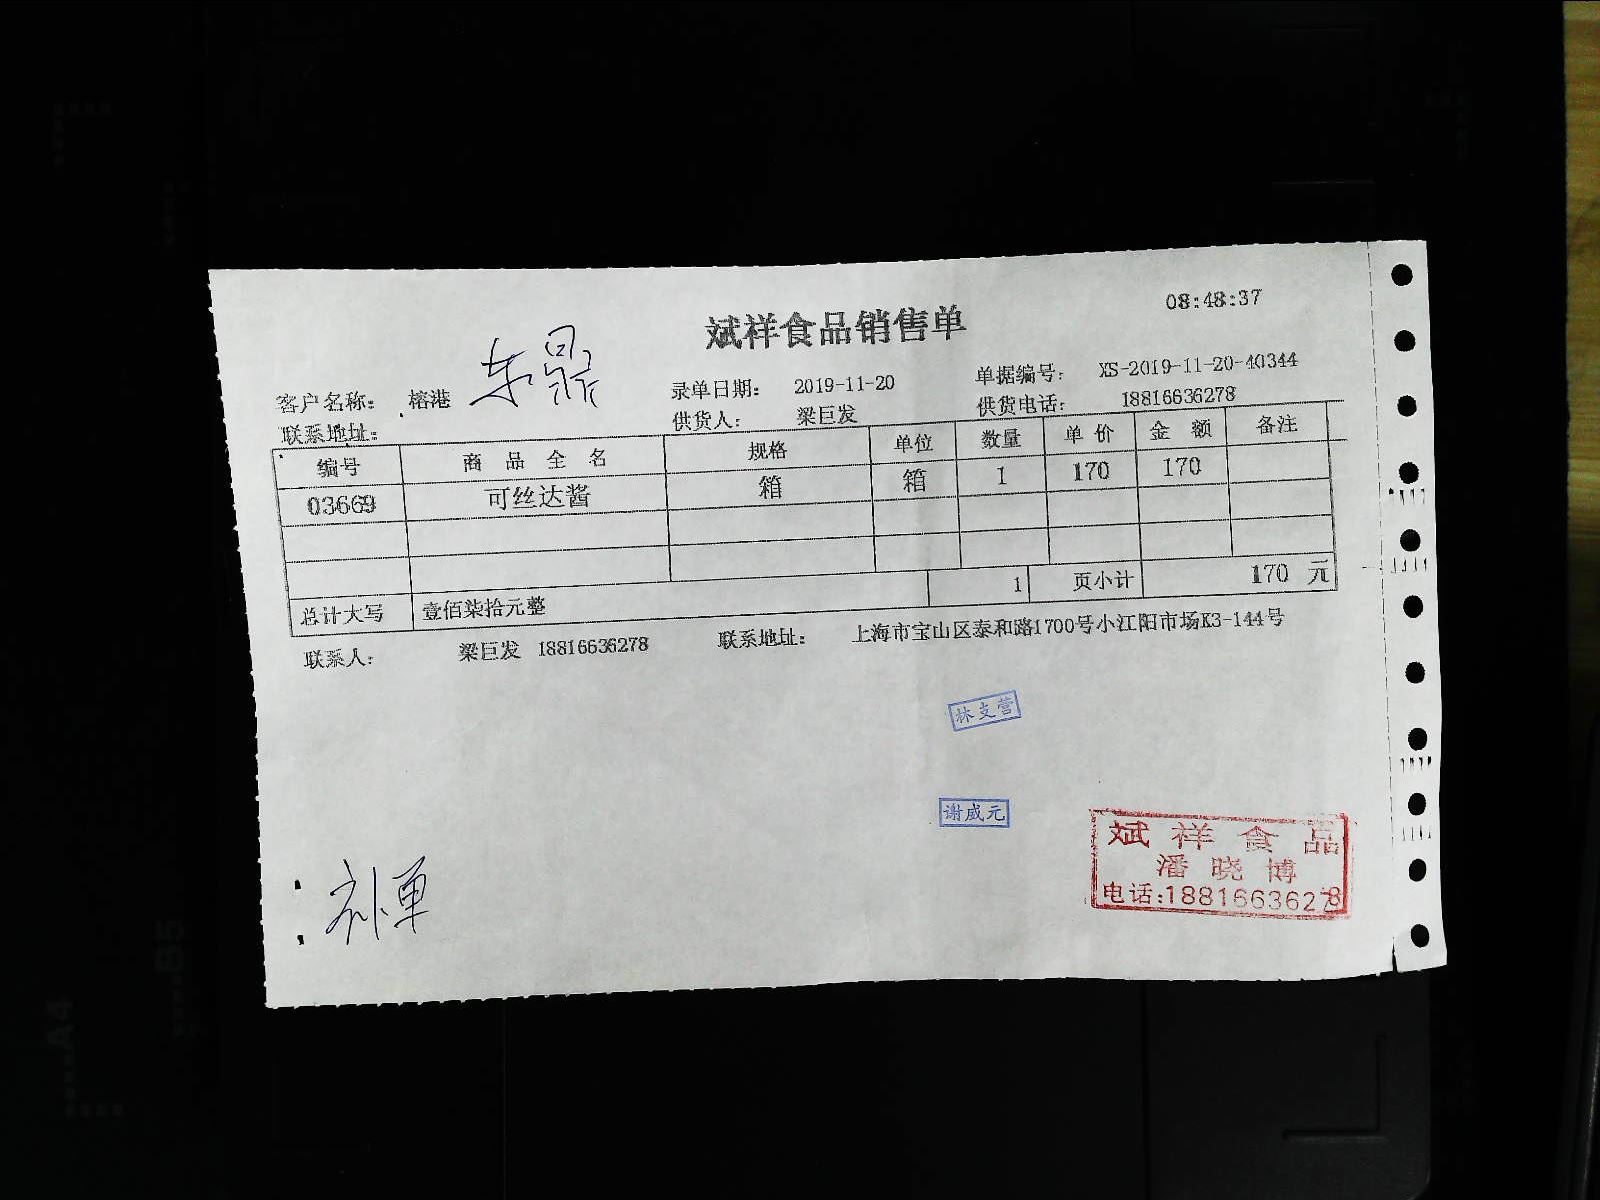 08:48:37
斌祥食品销售单
客户名称： 榕港 东鼎 录单日期： 2019-11-20 单据编号： XS-2019-11-20-40344
联系地址： 供货人： 梁巨发 供货电话： 18816636278
编号 商品全名 规格 单位 数量 单价 金额 备注
03669 可丝达酱 箱 箱 1 170 170
总计大写 壹佰柒拾元整 1 页小计 170 元
联系人： 梁巨发 18816636278 联系地址： 上海市宝山区泰和路1700号小江阳市场K3-144号
林支营
谢威元
斌祥食品
潘晓博
电话:18816636278
补单